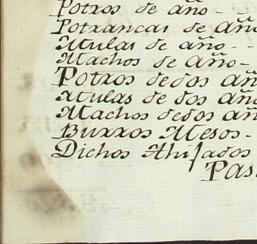 Potros de año -
Potrancas de año
Mulas de año -
Machos de año -
Potros de dos añ
Mulas de dos año
Machos de dos añ
Burros Mesos -
Dichos Ahijados
Pas